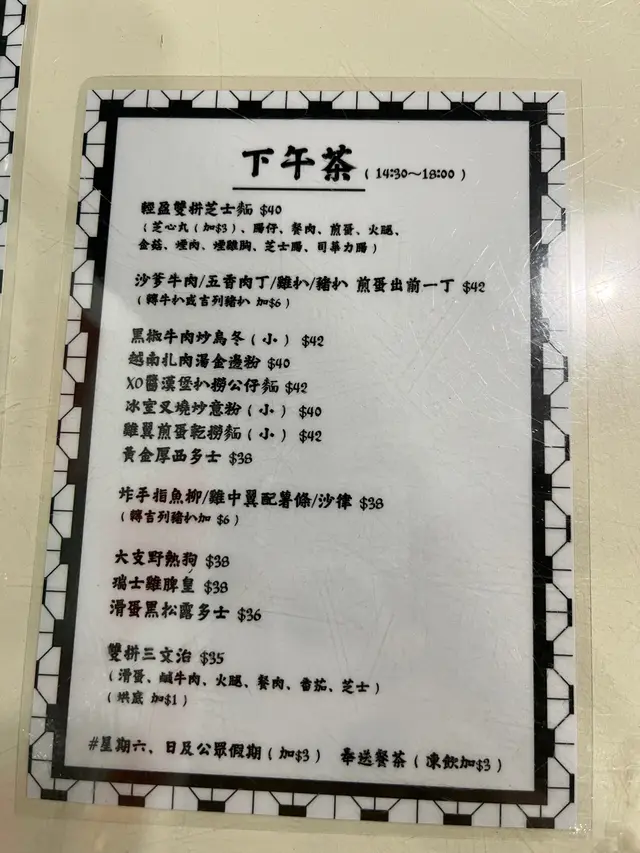 下午茶 ( 14:30～18:00 )
輕盈雙拼芝士麵 $40
( 芝心丸 ( 加$3 ) 、腸仔、餐肉、煎蛋、火腿、
金菇、煙肉、煙雞胸、芝士腸、司華力腸 )
沙爹牛肉/五香肉丁/雞扒/豬扒 煎蛋出前一丁 $42
( 轉牛扒或吉列豬扒 加$6 )
黑椒牛肉炒烏冬 ( 小 ) $42
越南扎肉湯金邊粉 $40
XO醬漢堡扒撈公仔麵 $42
冰室叉燒炒意粉 ( 小 ) $40
雞翼煎蛋乾撈麵 ( 小 ) $42
黃金厚西多士 $38
炸手指魚柳/雞中翼配薯條/沙律 $38
( 轉吉列豬扒加 $6 )
大支野熱狗 $38
瑞士雞脾皇 $38
滑蛋黑松露多士 $36
雙拼三文治 $35
( 滑蛋、鹹牛肉、火腿、餐肉、番茄、芝士 )
( 烘底 加$1 )
#星期六、日及公眾假期 ( 加$3 ) 奉送餐茶 ( 凍飲加$3 )